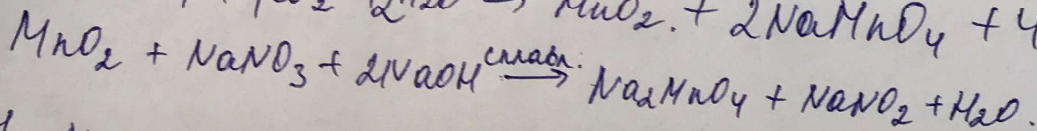 MnO₂ + 2NaMnO₄ + 4
MnO₂ + NaNO₃ + 2NaOH сплавл. → Na₂MnO₄ + NaNO₂ + H₂O.